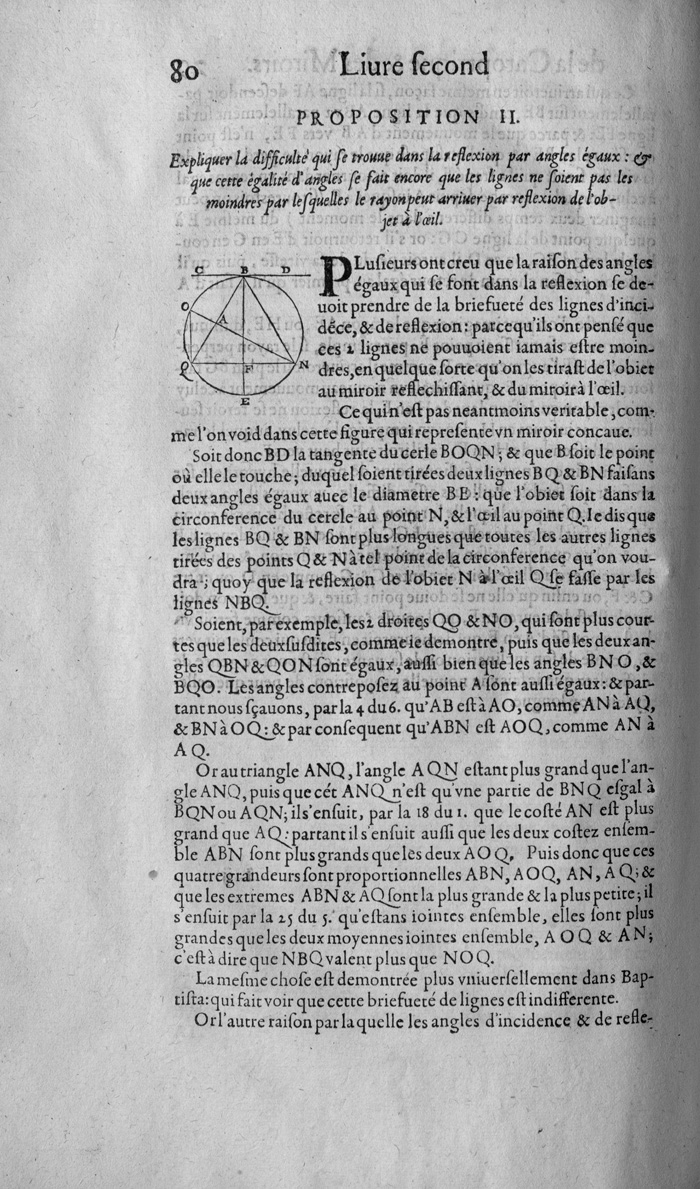 80
Liure ſecond
PROPOSITION II.
Expliquer la difficulté qui ſe trouue dans la reflexion par angles égaux : &
que cette égalité d'angles ſe fait encore que les lignes ne ſoient pas les
moindres par leſquelles le rayon peut arriuer par reflexion de l'ob-
jet à l'œil.
C B D
O
A
Q F N
E
PLuſieurs ont creu que la raiſon des angles
égaux qui ſe font dans la reflexion ſe de-
uoit prendre de la briefueté des lignes d'inci-
dẽce, & de reflexion : parce qu'ils ont penſé que
ces 2 lignes ne pouuoient iamais eſtre moin-
dres, en quelque ſorte qu'on les tiraſt de l'obiet
au miroir reflechiſſant, & du miroir à l'œil.
Ce qui n'eſt pas neantmoins veritable, com-
me l'on void dans cette figure qui repreſente vn miroir concaue.
Soit donc BD la tangente du cerle BOQN ; & que B ſoit le point
où elle le touche ; duquel ſoient tirées deux lignes BQ & BN faiſans
deux angles égaux auec le diametre BE : que l'obiet ſoit dans la
circonference du cercle au point N, & l'œil au point Q. Ie dis que
les lignes BQ & BN ſont plus longues que toutes les autres lignes
tirées des points Q & N à tel point de la circonference qu'on vou-
dra ; quoy que la reflexion de l'obiet N à l'œil Q ſe faſſe par les
lignes NBQ.
Soient, par exemple, les 2 droites QO & NO, qui ſont plus cour-
tes que les deux ſuſdites, comme ie demontre, puis que les deux an-
gles QBN & QON ſont égaux, auſſi bien que les angles BNO, &
BQO. Les angles contrepoſez au point A ſont auſſi égaux : & par-
tant nous ſçauons, par la 4 du 6. qu'AB eſt à AO, comme AN à AQ,
& BN à OQ : & par conſequent qu'ABN eſt AOQ, comme AN à
AQ.
Or au triangle ANQ, l'angle AQN eſtant plus grand que l'an-
gle ANQ, puis que cét ANQ n'eſt qu'vne partie de BNQ eſgal à
BQN ou AQN ; il s'enſuit, par la 18 du 1. que le coſté AN eſt plus
grand que AQ : partant il s'enſuit auſſi que les deux coſtez enſem-
ble ABN ſont plus grands que les deux AOQ. Puis donc que ces
quatre grandeurs ſont proportionnelles ABN, AOQ, AN, AQ ; &
que les extremes ABN & AQ ſont la plus grande & la plus petite ; il
s'enſuit par la 25 du 5. qu'eſtans iointes enſemble, elles ſont plus
grandes que les deux moyennes iointes enſemble, AOQ & AN ;
c'eſt à dire que NBQ valent plus que NOQ.
La meſme choſe eſt demontrée plus vniuerſellement dans Bap-
tiſta : qui fait voir que cette briefueté de lignes eſt indifferente.
Or l'autre raiſon par laquelle les angles d'incidence & de refle-